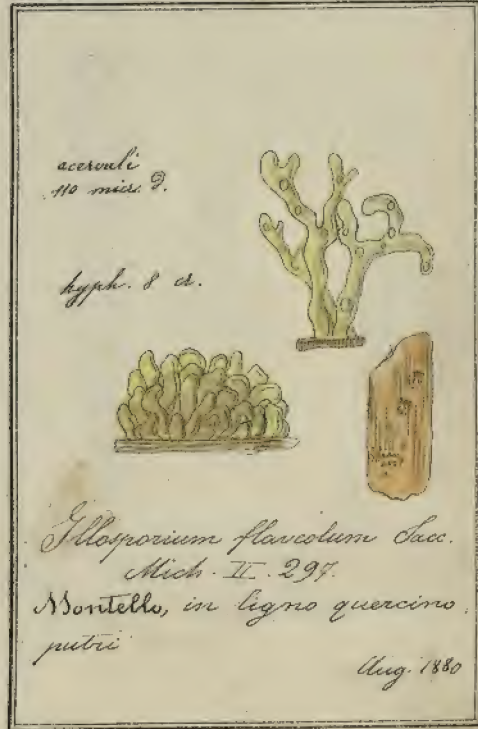 acervuli
110 micr. D.
hyph. 8 cr.
Illosporium flaveolum Sacc.
Mich. II. 297.
Montello, in ligno quercino
putri
Aug. 1880